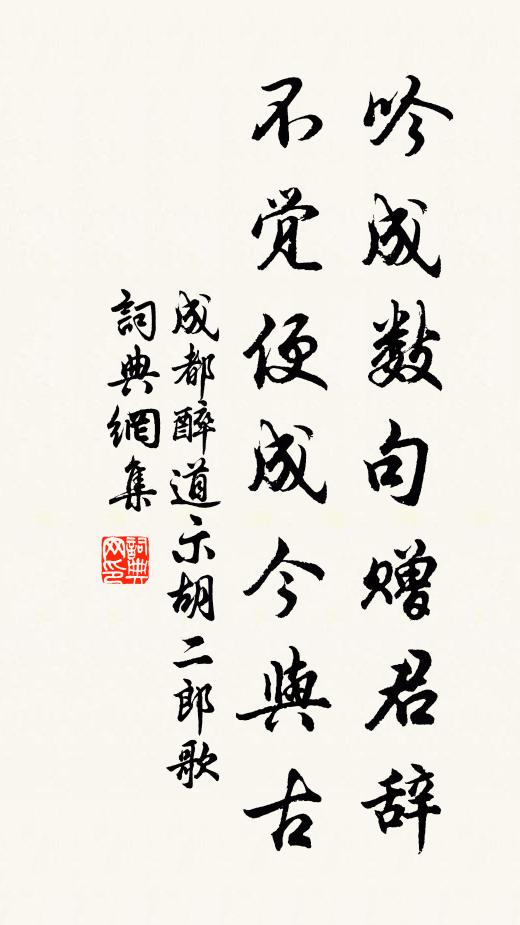 吟成数句赠君辞
不觉便成今與古
成都醉道示胡二郎歌
詞典網集
詞典
网印